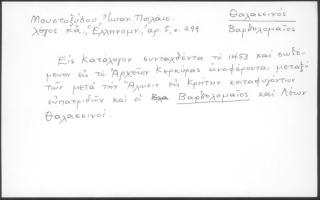 Μουστοξύδου, Ἰωάν. Παλαιο-
λόγος κ.ά., Ἑλληνομν., ἀρ. 5, σ. 299
Θαλασσινός
Βαρθολομαῖος
Εἰς κατάλογον συνταχθέντα τὸ 1453 καὶ σωζό-
μενον εἰς τὸ Ἀρχεῖον Κερκύρας ἀναφέρονται μεταξὺ
τῶν μετὰ τὴν Ἅλωσιν εἰς Κρήτην καταφυγόντων
εὐπατριδῶν καὶ οἱ Βαρθολομαῖος καὶ Λέων
Θαλασσινοί.